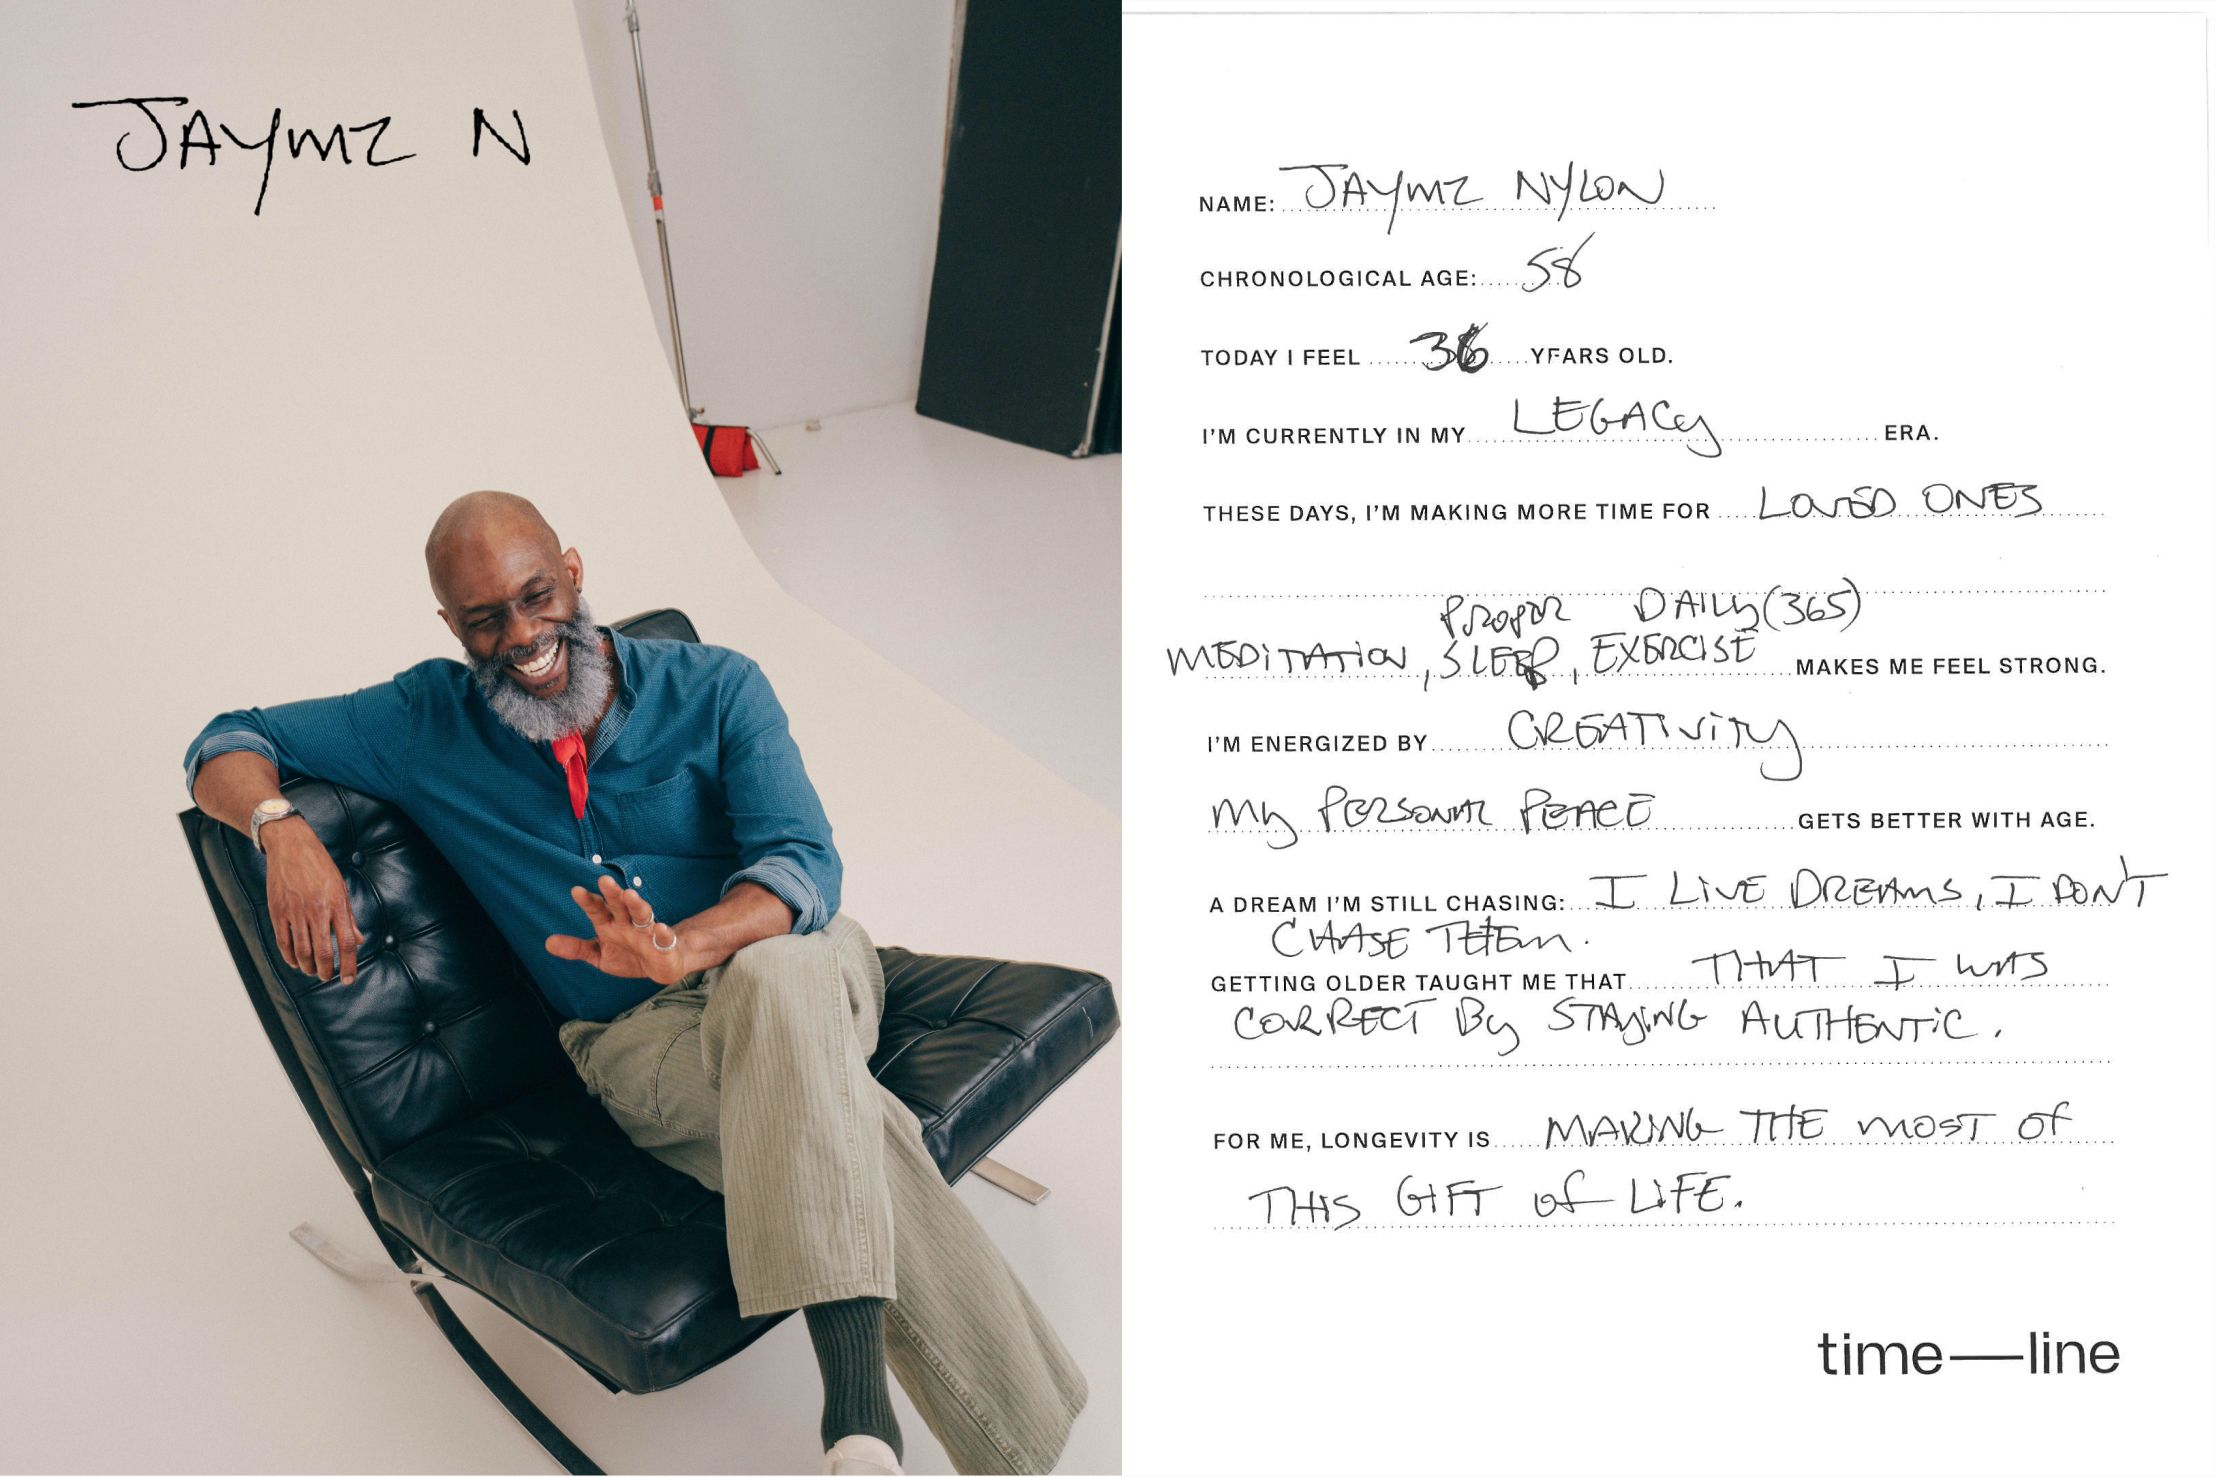 JAYMZ N
NAME: JAYMZ NYLON
CHRONOLOGICAL AGE: 58
TODAY I FEEL 36 YEARS OLD.
I'M CURRENTLY IN MY LEGACY ERA.
THESE DAYS, I'M MAKING MORE TIME FOR LOVED ONES
PROPER DAILY (365)
MEDITATION, SLEEP, EXERCISE MAKES ME FEEL STRONG.
I'M ENERGIZED BY CREATIVITY
MY PERSONAL PEACE GETS BETTER WITH AGE.
A DREAM I'M STILL CHASING: I LIVE DREAMS, I DON'T
CHASE THEM.
GETTING OLDER TAUGHT ME THAT THAT I WAS
CORRECT BY STAYING AUTHENTIC.
FOR ME, LONGEVITY IS MAKING THE MOST OF
THIS GIFT OF LIFE.
time—line